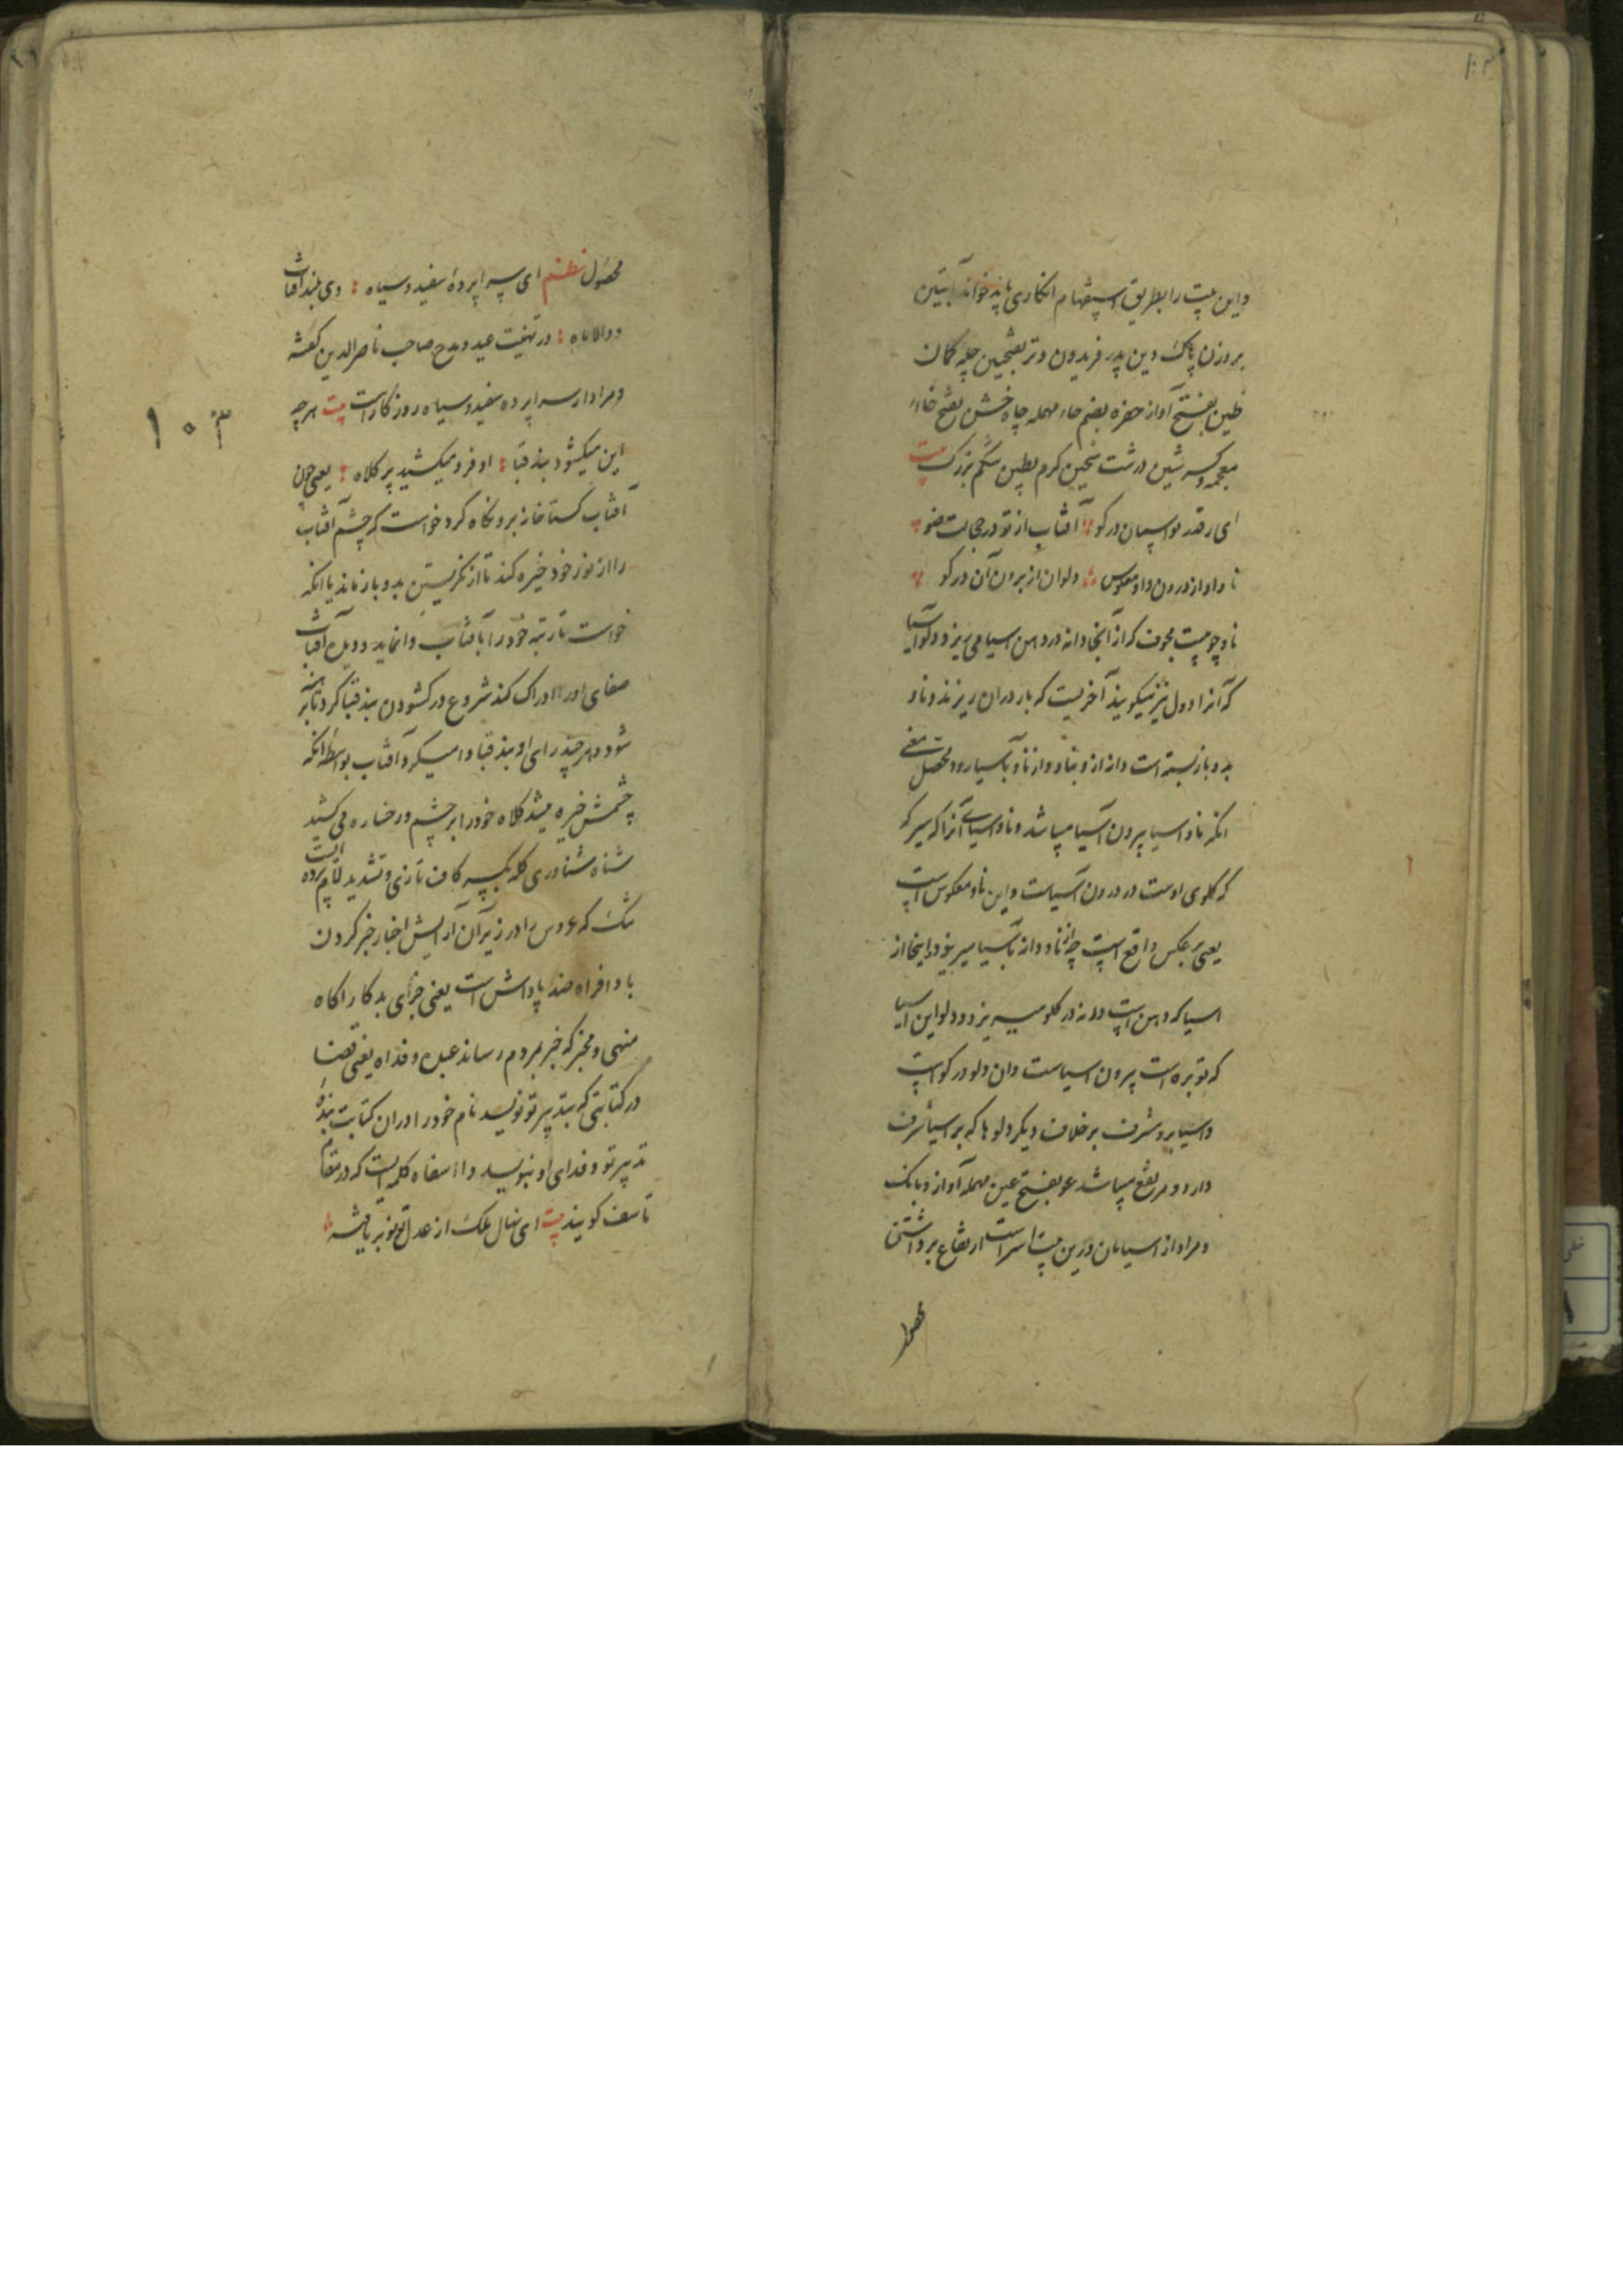 واین بیت را بطریق استفهام انکاری باید خواند آبتین
بروزن پاک دین پدر فریدون وتر بفتحین چله کمان
طنین بفتح آواز حفره بضم حاء مهمله چاه خشن بفتح خاء
معجمه وکسر شین درشت سخین کرم بطین شکم بزرک بیت
ای قدر تو اسمان در کو آفتاب از تو در حجالت ضو
ناو او از درون ناو معکوس ودلو ان از برون آن در کو
ناو چوبیست مجوف که از آنجا دانه در دهن اسیا می ریزد ودلو آسیا
که آنرا دول نیز میکویند آخریست که بار دران ریزند وناو
بدو باز بسته است دانه از و بناو واز ناو بآسیا رود محصل معنی
انکه ناو اسیا بیرون آسیا میباشد وناو اسیای آنرا که سیر که
که کلوی اوست در درون آسیاست واین ناو معکوس است
یعنی بر عکس واقع است چه از ناو دانه بآسیا میریزد واینجا از
اسیا که دهن است دانه در کلو میریزد ودلو این اسیا
که توبره است بیرون اسیاست وان دلو در کو است
واسیا برو مشرف بر خلاف دیکر دلوها که بر اسیا شرف
دارد ومرتفع میباشد عو بفتح عین مهمله آواز وبانک
ومراد از اسیابان درین بیت استر است ارتفاع برداشتن
محصول
۱۰۳
محصول نظم ای سراپرده سفید وسیاه وی بلند آفتاب
ووالا ماه در تهنیت عید ومدح صاحب ناصرالدین کفته
ومراد از سراپرده سفید وسیاه روزکار است بیت هر چه
این میکشود بند قبا او فرو میکشید پر کلاه یعنی چون
آفتاب کستاخانه برو نکاه کرد خواست که چشم آفتاب
را از نور خود خیره کند تا از نکریستن بدو باز ماند یا انکه
خواست تا رتبه خود را بآفتاب وانماید ودیده آفتاب
صفای اورا ادراک کند شروع در کشودن بند قبا کرد تا برهنه
شود هر چند رای او بند قبا وا میکرد آفتاب بواسطه انکه
چشمش خیره میشد کلاه خود را بر چشم ورخساره می کشید
شناه شناوری کله بکسر کاف تازی وتشدید لام پرده ایست
تنک که عروس را در زیر آن آرایش اخبار خبر کردن
باد افراه ضد پاداش است یعنی جزای بد کار اکاه
منهی ومخبر که خبر بمردم رساند عبده وفداه یعنی قضا
در کتابتی که بتدبیر تو نویسد نام خود را در ان کتابت بنده
تدبیر تو وفدای او بنویسد وا اسفاه کلمه ایست که در مقام
تاسف کویند بیت ای نهال ملک از عدل تو بر یافته